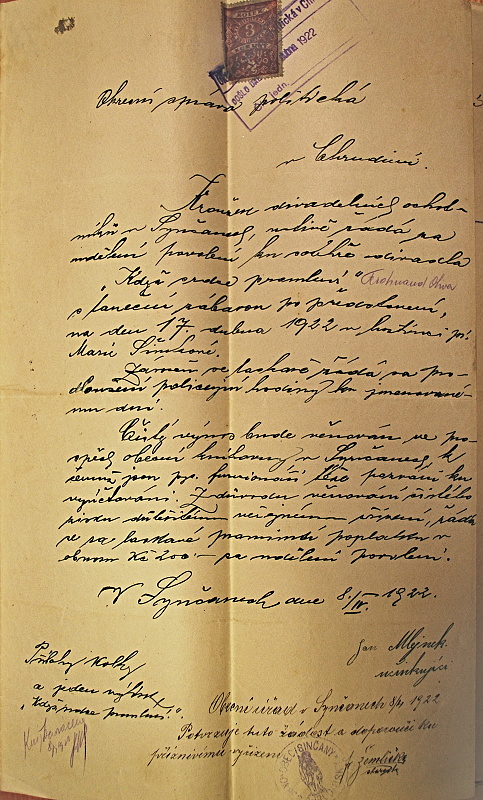 3
Okresní správa politická
v Chrudimi.
Kroužek divadelních ochot-
níků v Synčanech, uctivě žádá za
udělení povolení ku sehrání divadla
„Když srdce promluví" Ferdinand Oliva
s taneční zábavou po představení,
na den 17. dubna 1922 v hostinci pí.
Marie Šimkové.
Zároveň se laskavě žádá za pro-
dloužení policejní hodiny ku jmenované-
mu dni.
Čistý výnos bude věnován ve pro-
spěch obecní knihovny v Synčanech, k
čemuž jsou pp. funcionáři též pozváni ku
vyúčtování. Z důvodu věnování čistého
žádá
se za laskavé prominutí poplatku v
obnosu Kč 200·– za udělení povolení.
V Synčanech dne 8./IV. 1922.
Jan Mlejnek
účinkující
Přílohy kolky
a jeden výtisk
„Když srdce promluví".
Obecní úřad v Synčanech 8/4 1922
Potvrzuje tuto žádost a doporučuje ku
příznivému vyřízení
Žemlička
starosta